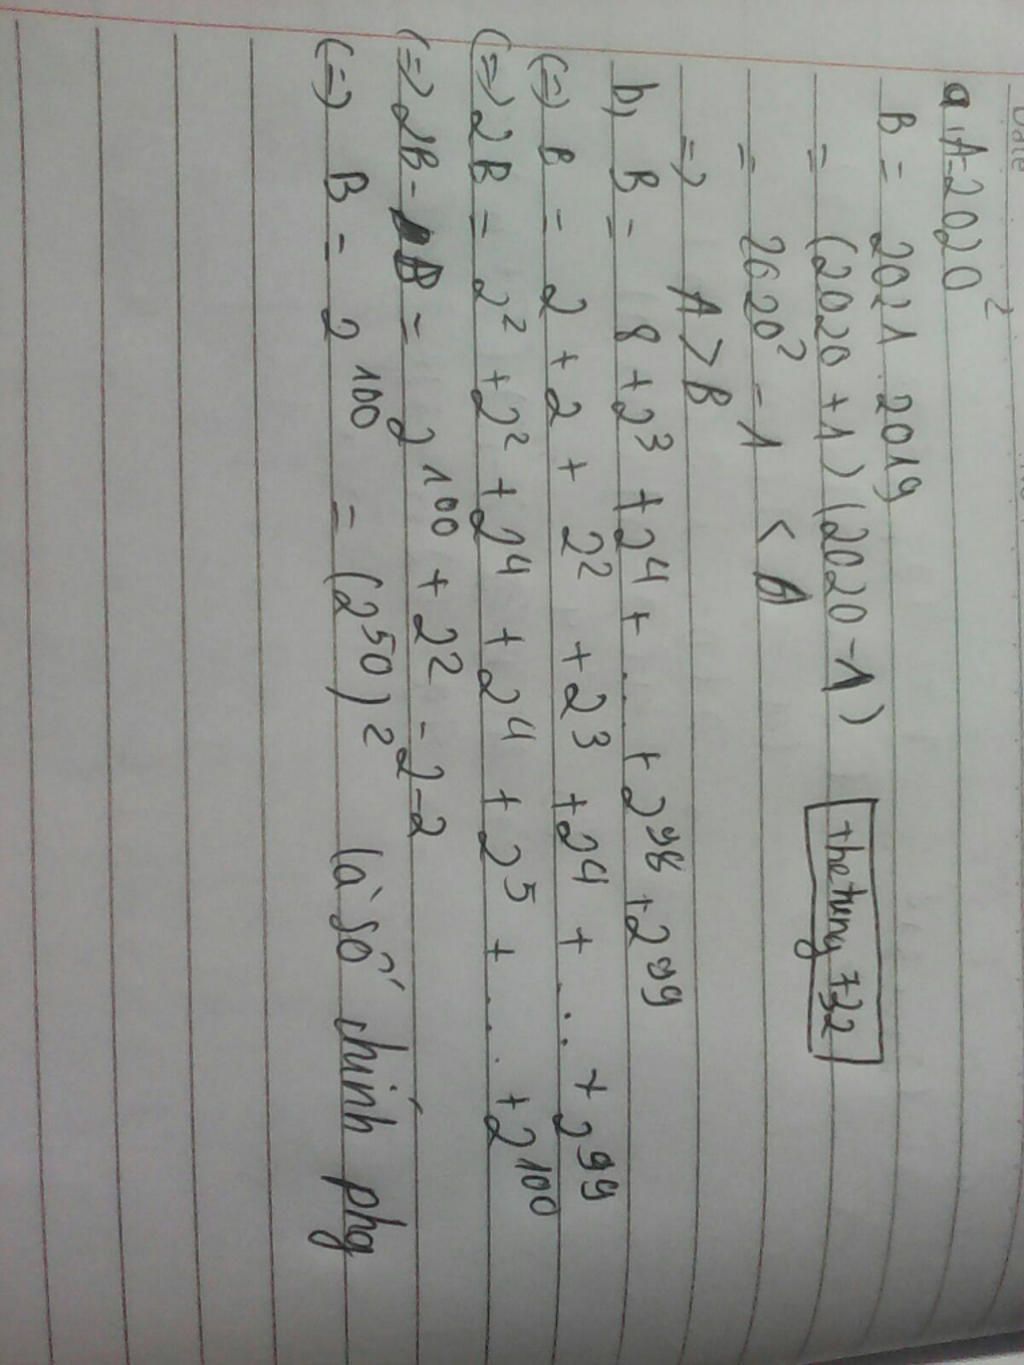 Date
a, A = 2020²
B = 2021 . 2019
= (2020 + 1) (2020 - 1)
thetung732
= 2020² - 1 < A
=> A > B
b, B = 8 + 2³ + 2⁴ + ... + 2⁹⁸ + 2⁹⁹
(=) B = 2 + 2 + 2² + 2³ + 2⁴ + ... + 2⁹⁹
(=) 2B = 2² + 2² + 2⁴ + 2⁴ + 2⁵ + ... + 2¹⁰⁰
(=) 2B - B = 2¹⁰⁰ + 2² - 2 - 2
(=) B = 2¹⁰⁰ = (2⁵⁰)² là số chính phg